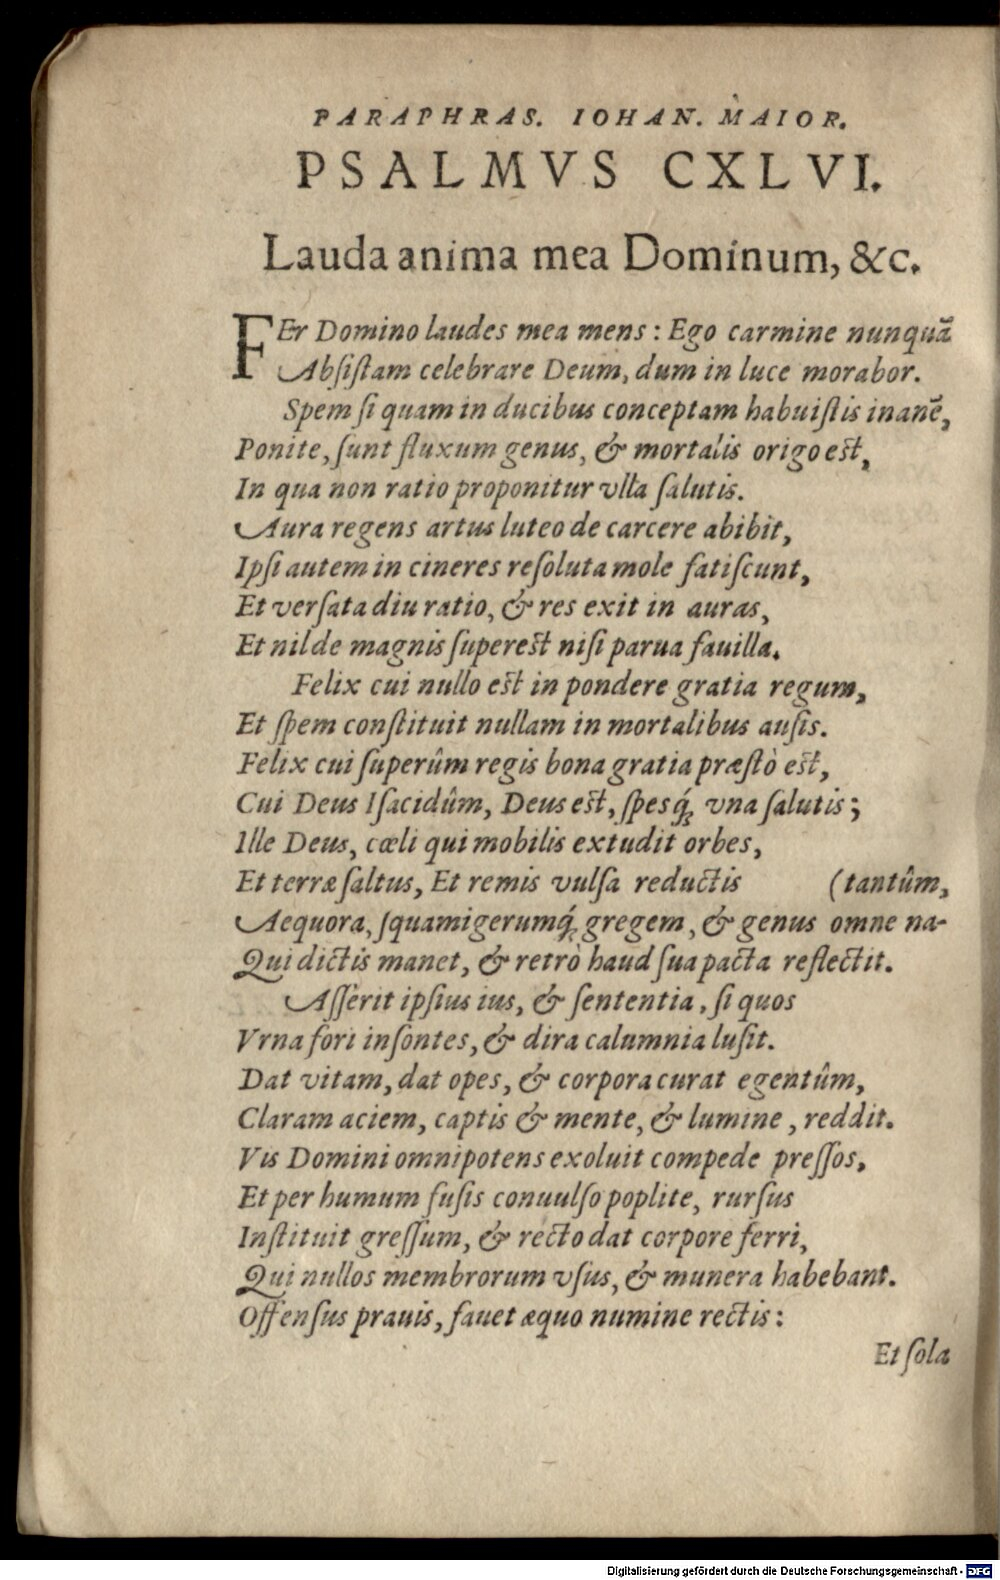 PARAPHRAS. IOHAN. MAIOR.
PSALMVS CXLVI.
Lauda anima mea Dominum, &c.
FEr Domino laudes mea mens: Ego carmine nunquã
Absiſtam celebrare Deum, dum in luce morabor.
Spem ſi quam in ducibus conceptam habuiſtis inanẽ,
Ponite, ſunt fluxum genus, & mortalis origo eſt,
In qua non ratio proponitur vlla ſalutis.
Aura regens artus luteo de carcere abibit,
Ipſi autem in cineres reſoluta mole fatiſcunt,
Et verſata diu ratio, & res exit in auras,
Et nil de magnis ſupereſt niſi parua fauilla.
Felix cui nullo eſt in pondere gratia regum,
Et ſpem conſtituit nullam in mortalibus auſis.
Felix cui ſuperûm regis bona gratia præſtò eſt,
Cui Deus Iſacidûm, Deus eſt, ſpesq́ꝫ vna ſalutis;
Ille Deus, cœli qui mobilis extudit orbes,
Et terræ ſaltus, Et remis vulſa reductis (tantûm,
Aequora, ſquamigerumq́ꝫ gregem, & genus omne na-
Qui dictis manet, & retrò haud ſua pacta reflectit.
Aſſerit ipſius ius, & ſententia, ſi quos
Vrna fori inſontes, & dira calumnia luſit.
Dat vitam, dat opes, & corpora curat egentûm,
Claram aciem, captis & mente, & lumine, reddit.
Vis Domini omnipotens exoluit compede preſſos,
Et per humum fuſis conuulſo poplite, rurſus
Inſtituit greſſum, & recto dat corpore ferri,
Qui nullos membrorum vſus, & munera habebant.
Offenſus prauis, fauet æquo numine rectis:
Et ſola
Digitalisierung gefördert durch die Deutsche Forschungsgemeinschaft - DFG